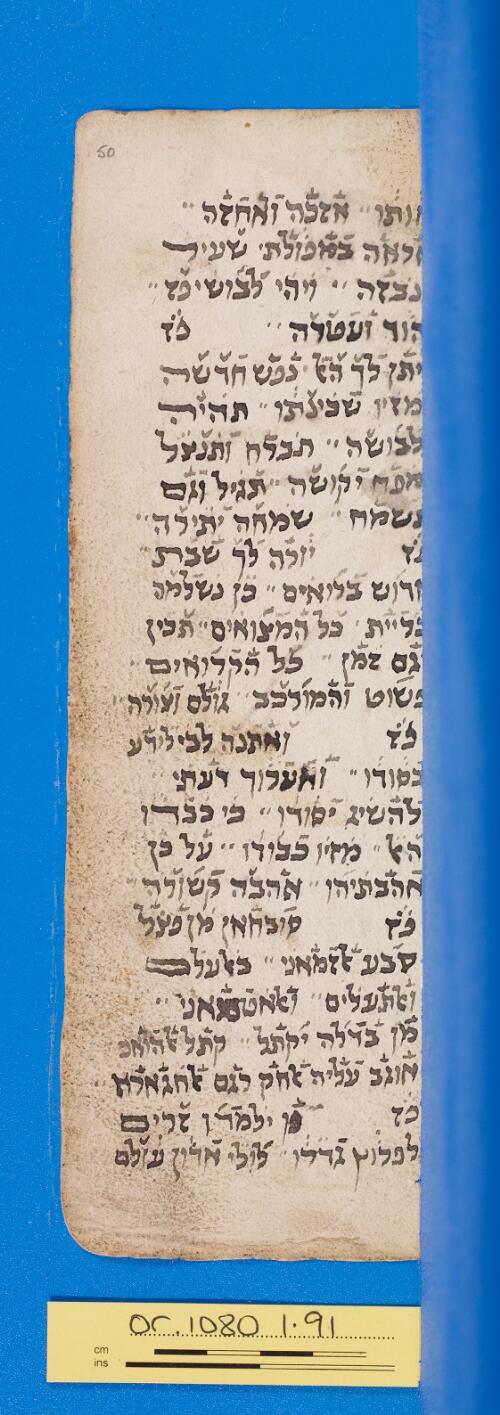 50
אותו אזכה ואחזה
אראה במכולת שעיר
נבזה ויהי לבושי כז
הוד ועטרה כז
יתן לך האל נפש חדשה
מזיו שכינתו תהיה
לבושה תברח ותנצל
מפח יקושה תגיל וגם
תשמח שמחה יתירה
כז יורה לך שברת
חרוש בלואים כן נשלמה
בריית כל המצואים תכין
וגם זמן כל הקרואים
פשוט והמורכב גולם וצורה
כז ואתנה לבי לידע
בסודו ואערוך דעתי
להשיג יסודו כי כבודו
האל מזיו כבודו על כן
אהבתיהו אהבה קשורה
כז סובחאן מן פצל
סבע אלזמאני באעלם
ואלתעלים
מן בדלה יקתל קתל
אוגב עליה אלחק רגם אלחגארה
כז מן ילמדו זרים
לפרוץ גדרו לולי אדון עולם
or.1080 1.91
cm
ins